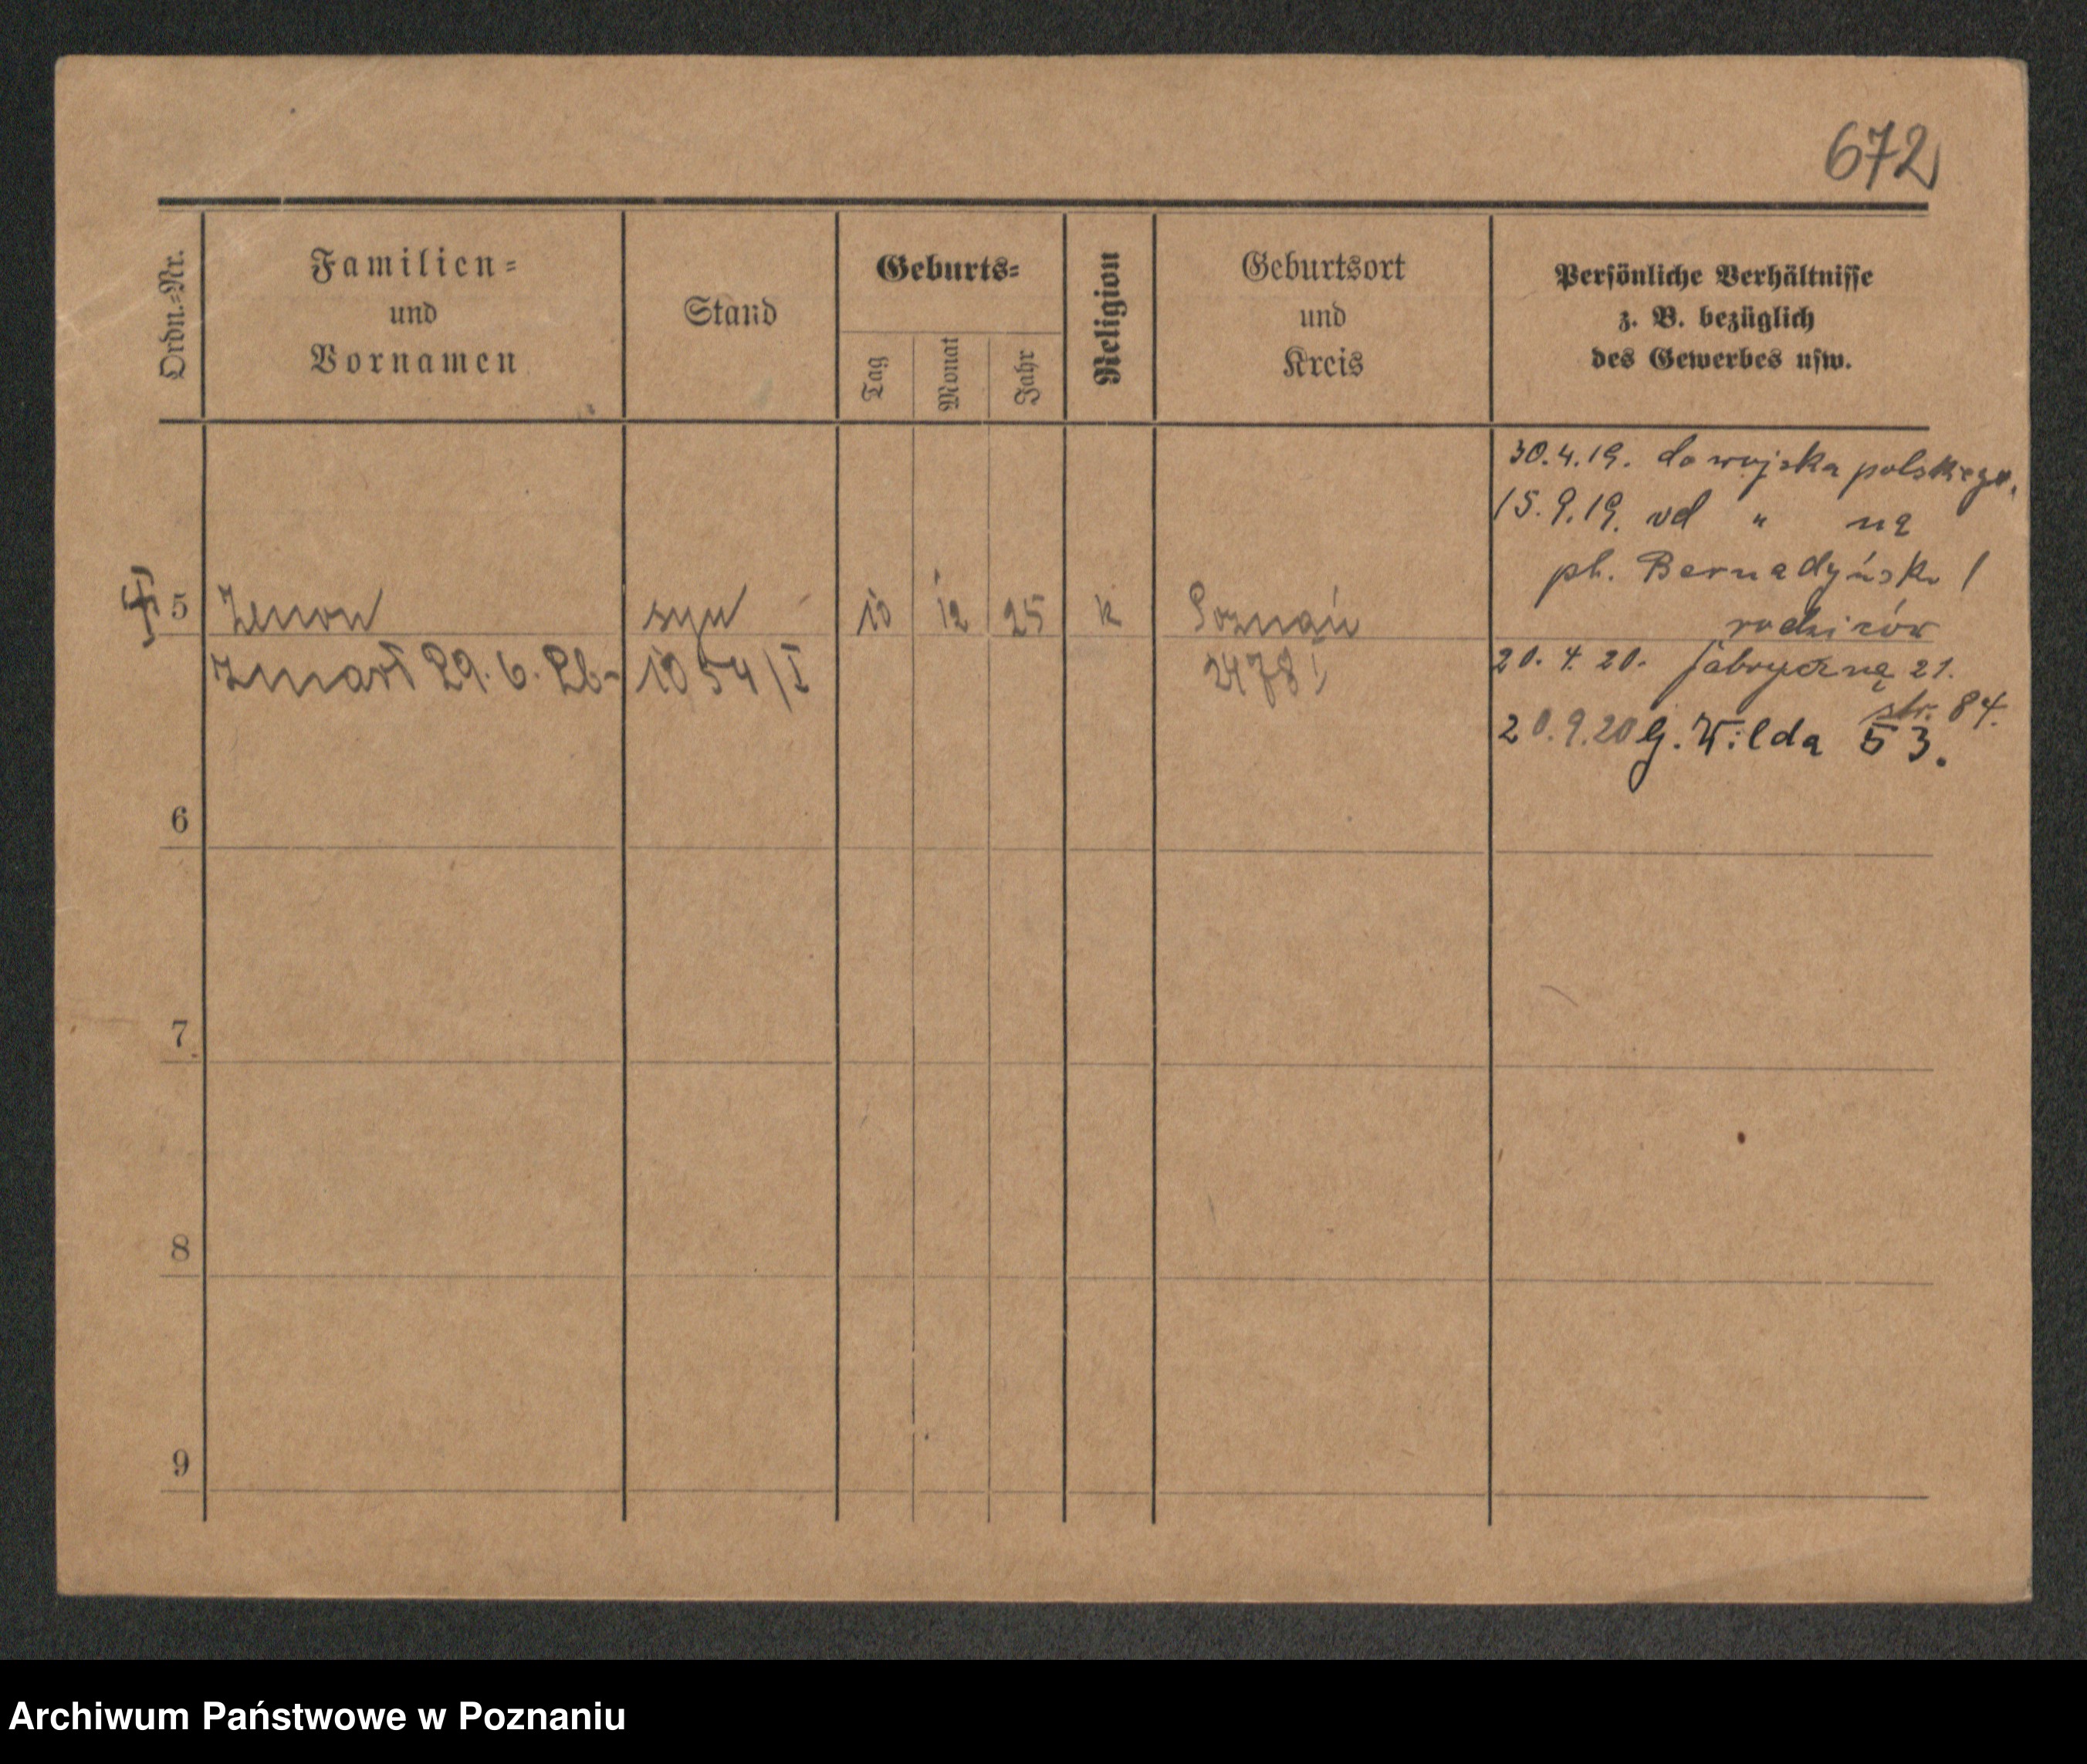 672
Ordn.=Nr.
Familien=
und
Vornamen
Stand
Geburts=
Tag
Monat
Jahr
Religion
Geburtsort
und
Kreis
Persönliche Verhältnisse
z. B. bezüglich
des Gewerbes usw.
30.4.19. do wojska polskiego.
15.9.19. od " na
pl. Bernadyńsk. 1
rodziców
5 Zenon syn 10 12 25 k Poznań
Zmarł 29. 6. 26- 1054/I 2478
20. 4. 20. Fabryczną 21.
str. 84.
20.9.20 G. Wilda 53.
6
7
8
9
Archiwum Państwowe w Poznaniu